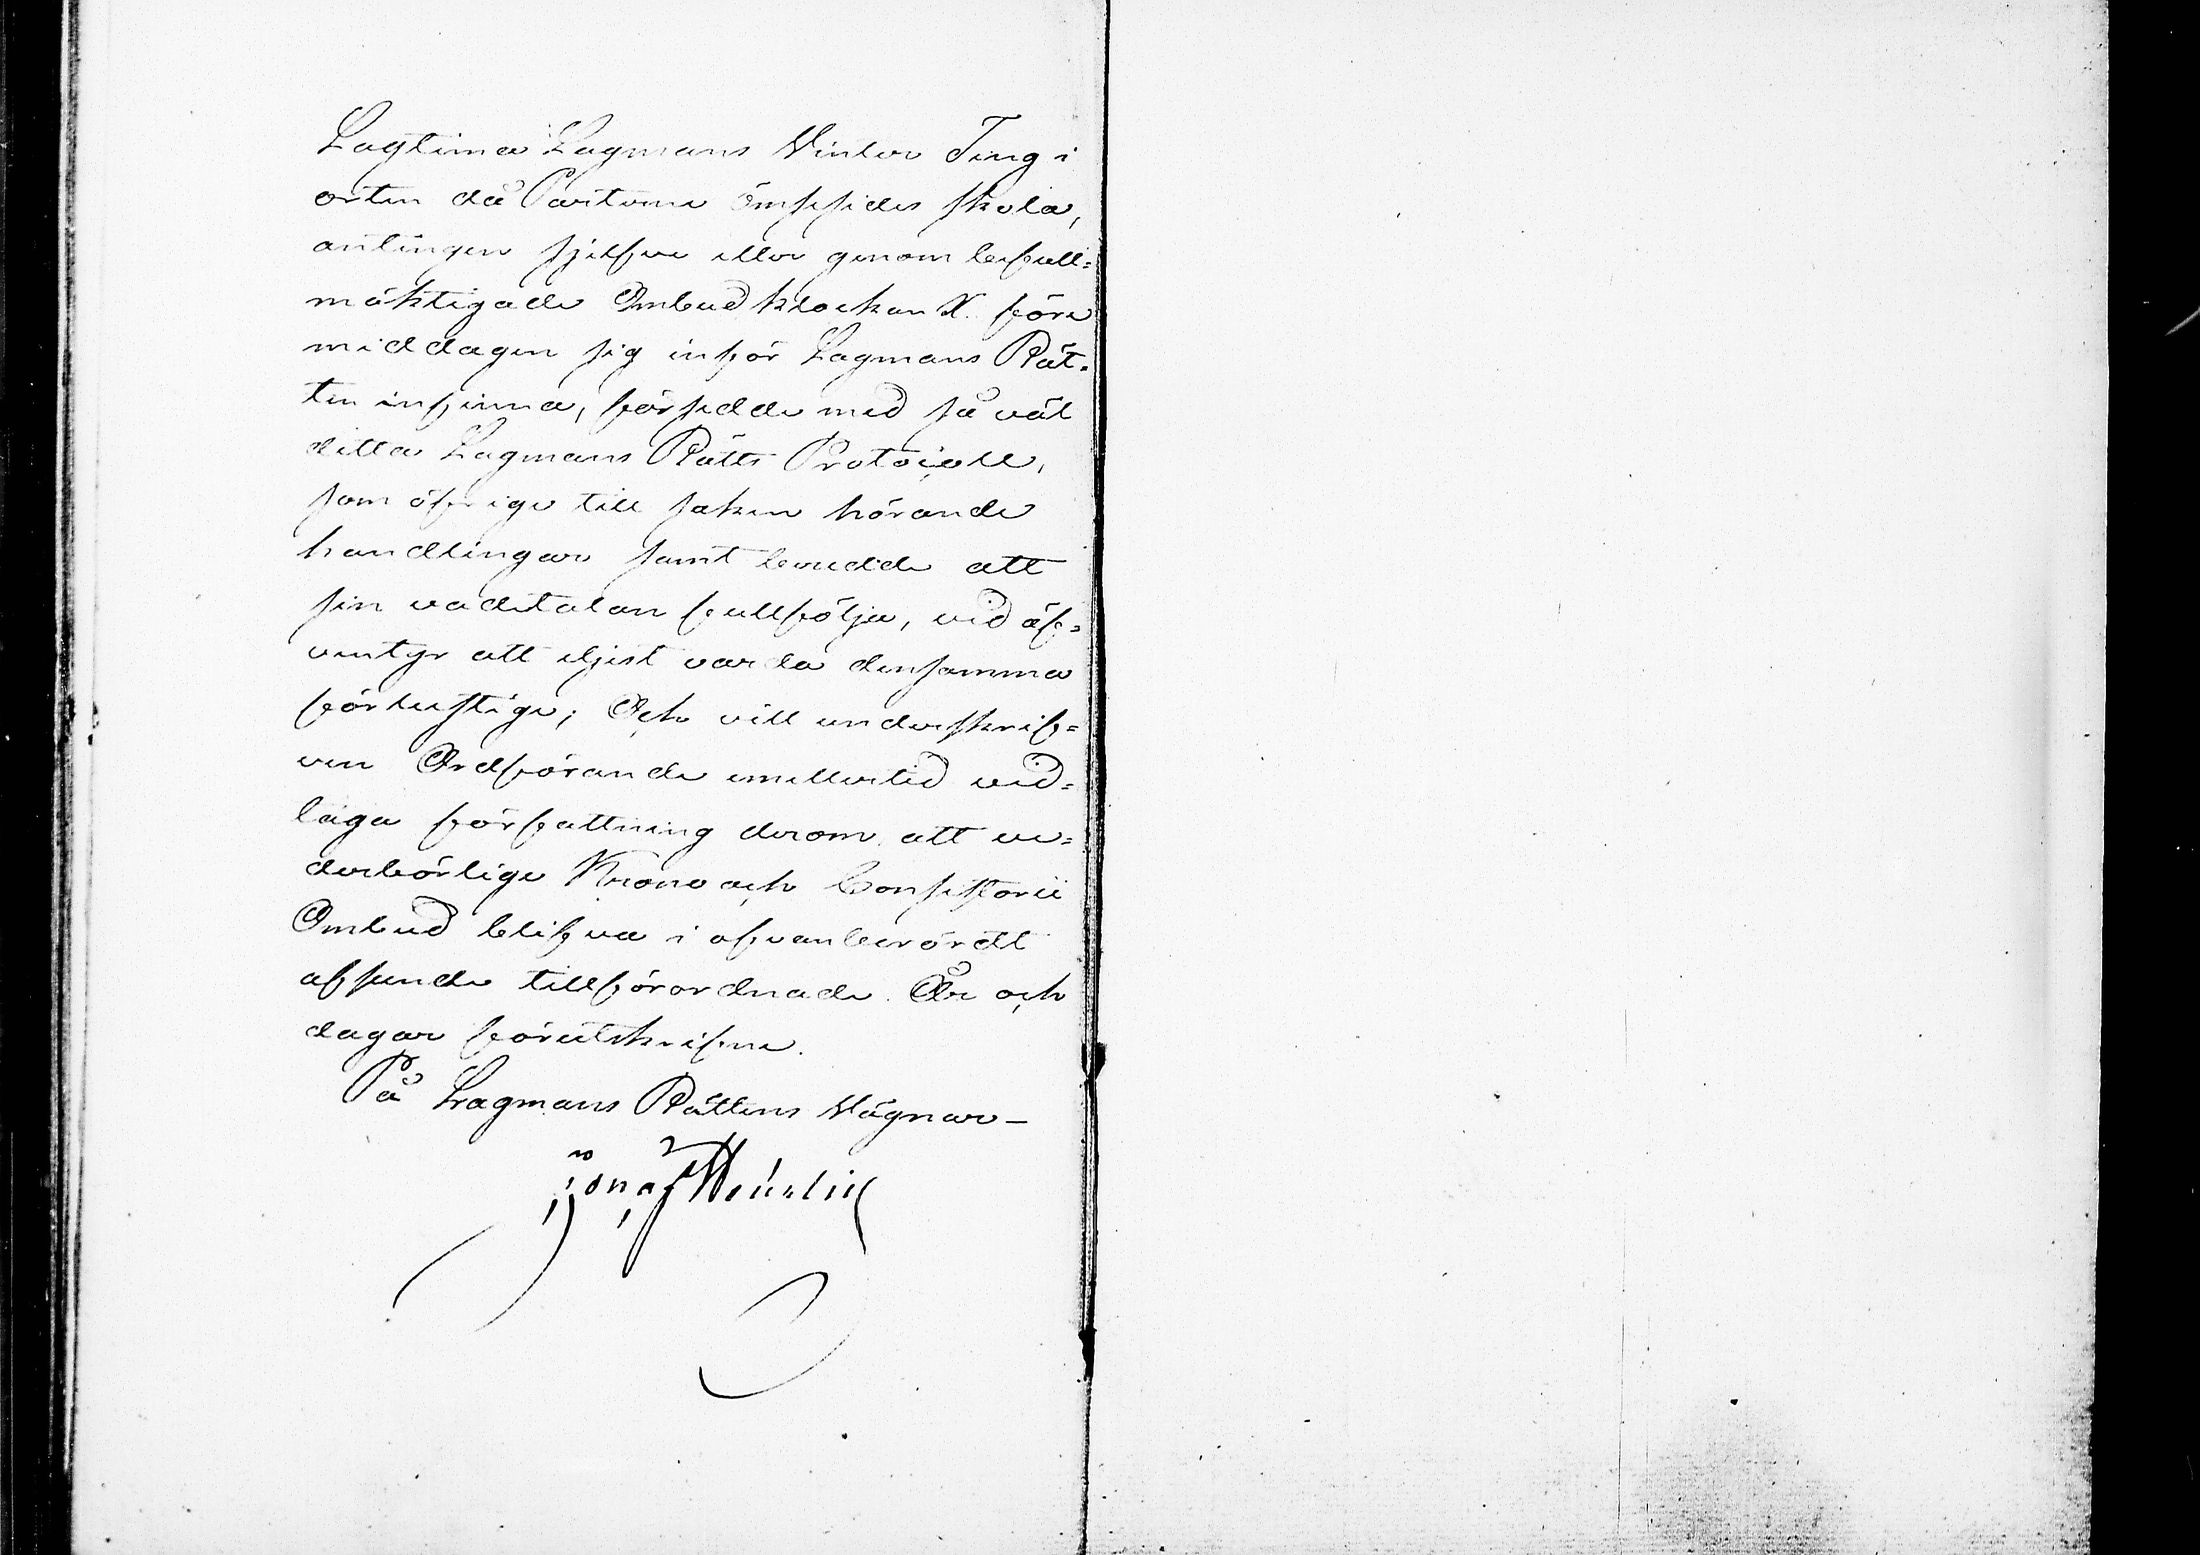 Lagtima Lagmans Vinter Ting i
orten då Parterne ömsesides skola,
antingen sjelfve eller genom befull=
mäktigade Ombud klockan X. före
middagen sig inför Lagmans Rät=
ten infinna, försedde med så väl
detta Lagmans Rätts Protocoll,
som öfrige till saken hörande
handlingar samt beredde att
sin vadetalan fullfölja, vid äf=
ventyr att eljest varda densamma
förlustige; Och vill underskrif=
ven Ordförande emellertid vid=
taga författning derom att ve=
derbörlige Krono och Consistorii
Ombud blifva i ofvanberördt
afseende tillförordnade. År och
dagar förutskrifne.
På Lagmans Rättens Vägnar_
Jonas